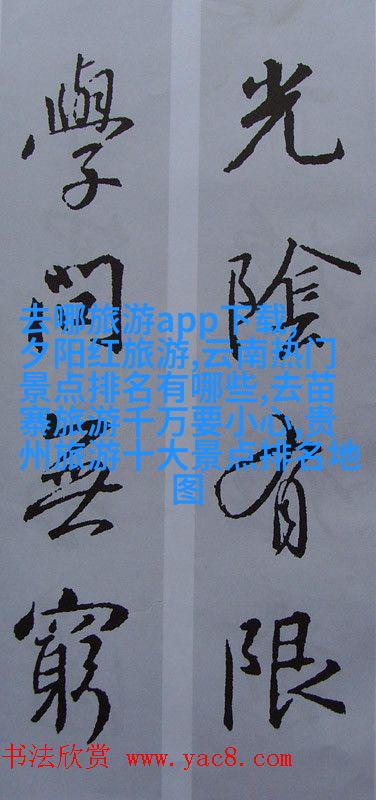 光陰有限
學問無窮
去哪旅游app下载,
夕阳红旅游,云南热门
景点排名有哪些,去苗
寨旅游千万要小心,贵
州旅游十大景点排名地
图
书法欣赏 www.yac8.com